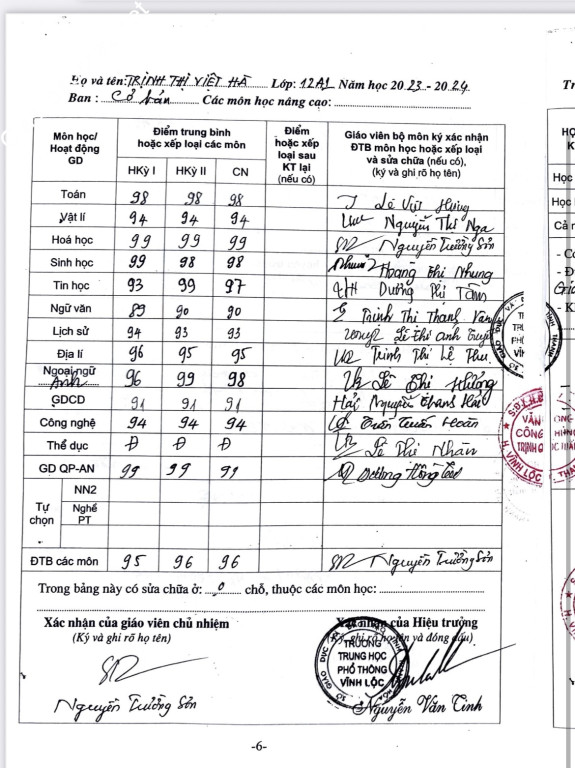 Họ và tên: TRỊNH THỊ VIỆT HÀ Lớp: 12A1 Năm học 2023 - 2024
Ban: Cơ bản Các môn học nâng cao:
Môn học/ Hoạt động GD | Điểm trung bình hoặc xếp loại các môn | Điểm hoặc xếp loại sau KT lại (nếu có) | Giáo viên bộ môn ký xác nhận ĐTB môn học hoặc xếp loại và sửa chữa (nếu có), (ký và ghi rõ họ tên)
HKỳ I | HKỳ II | CN
Toán 98 98 98 Lê Việt Hùng
Vật lí 94 94 94 Nguyễn Thị Nga
Hoá học 99 99 99 Nguyễn Trường Sơn
Sinh học 99 98 98 Nhung Hoàng Thị Nhung
Tin học 93 99 97 Dương Thị Tâm
Ngữ văn 89 90 90 Trịnh Thị Thanh Vân
Lịch sử 94 93 93 Lê thị anh Tuyết
Địa lí 96 95 95 Trịnh Thị Lệ Thu
Ngoại ngữ Anh 96 99 98 Lê Thị Hường
GDCD 91 91 91 Hải Nguyễn Thanh Hải
Công nghệ 94 94 94 Trần Tuấn Hoàn
Thể dục Đ Đ Đ Lê Thị Nhàn
GD QP-AN 99 99 99 Dương Hồng
Tự chọn
NN2
Nghề PT
ĐTB các môn 95 96 96 Nguyễn Trường Sơn
Trong bảng này có sửa chữa ở: 0 chỗ, thuộc các môn học:
Xác nhận của giáo viên chủ nhiệm
(Ký và ghi rõ họ tên)
Xác nhận của Hiệu trưởng
(Ký, ghi rõ họ tên và đóng dấu)
TRƯỜNG
TRUNG HỌC
PHỔ THÔNG
VĨNH LỘC
Nguyễn Trường Sơn
Nguyễn Văn Tình
-6-
VĂN
CÔNG
TRỊNH
H. VĨNH LỘC